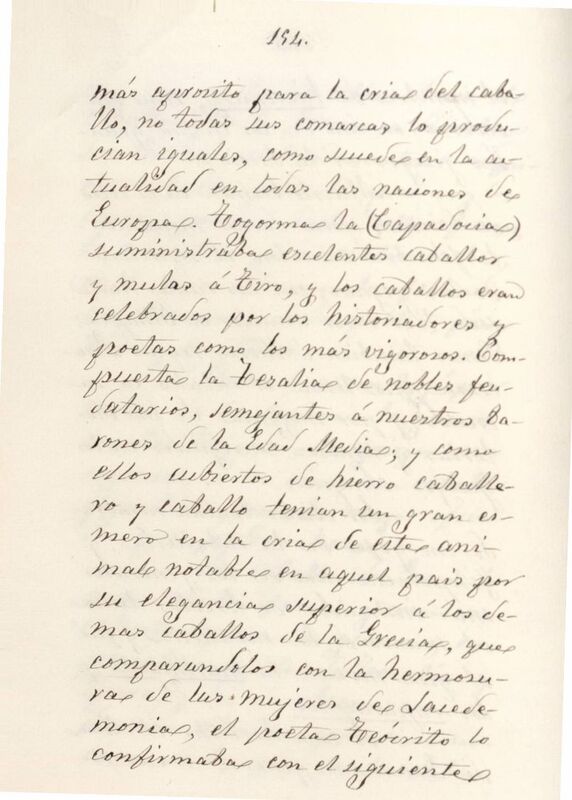 154.
más aprosito para la cria del caba-
llo, no todas sus comarcas lo produ-
cian iguales, como sucede en la ac-
tualidad en todas las naciones de
Europa. Togorma la (Capadocia)
suministraba escelentes caballos
y mulas á Tiro, y los caballos eran
celebrados por los historiadores y
poetas como los más vigorosos. Com-
puesta la Tesalia de nobles feu-
datarios, semejantes á nuestros Ba-
rones de la Edad Media; y como
ellos cubiertos de hierro caballe-
ro y caballo tenian un gran es-
mero en la cria de este ani-
mal notable en aquel pais por
su elegancia superior á los de-
mas caballos de la Grecia, que
comparandolos con la hermosu-
ra de las mujeres de Lacede-
monia, el poeta Teócrito lo
confirmaba con el siguiente